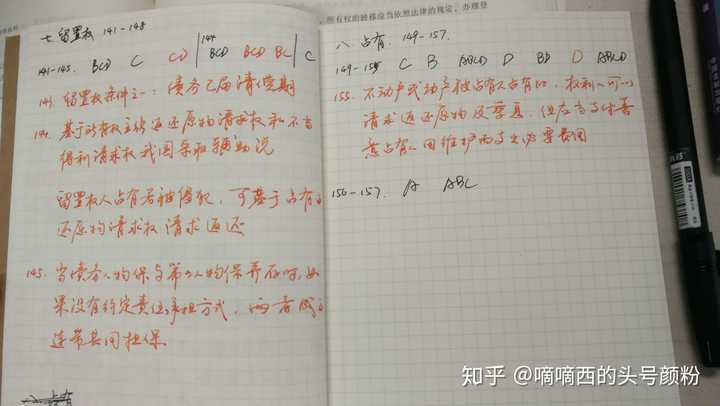 所有权的转移应当依照法律的规定，办理登
七 留置权 141-148
141-145. BCD C CD | 144 BCD BCD BC | C
143. 留置权条件之一：债务已届清偿期
144. 基于所有权主张返还原物请求权和不当
得利请求权 我国采取辅助说
留置权人占有若被侵犯，可基于占有
还原物请求权 请求返还
145. 当债务人物保与第三人物保并存时，如
果没有约定责任承担方式，两者成立
连带共同担保
占有
八、占有. 149-157.
149-155 C B ABCD D BD D ABCD
155. 不动产或动产被占有人占有的，权利人可以
请求返还原物及孳息，但应当支付善
意占有人因维护而支出必要费用
156-157. A ABC
知乎 @嘀嘀西的头号颜粉